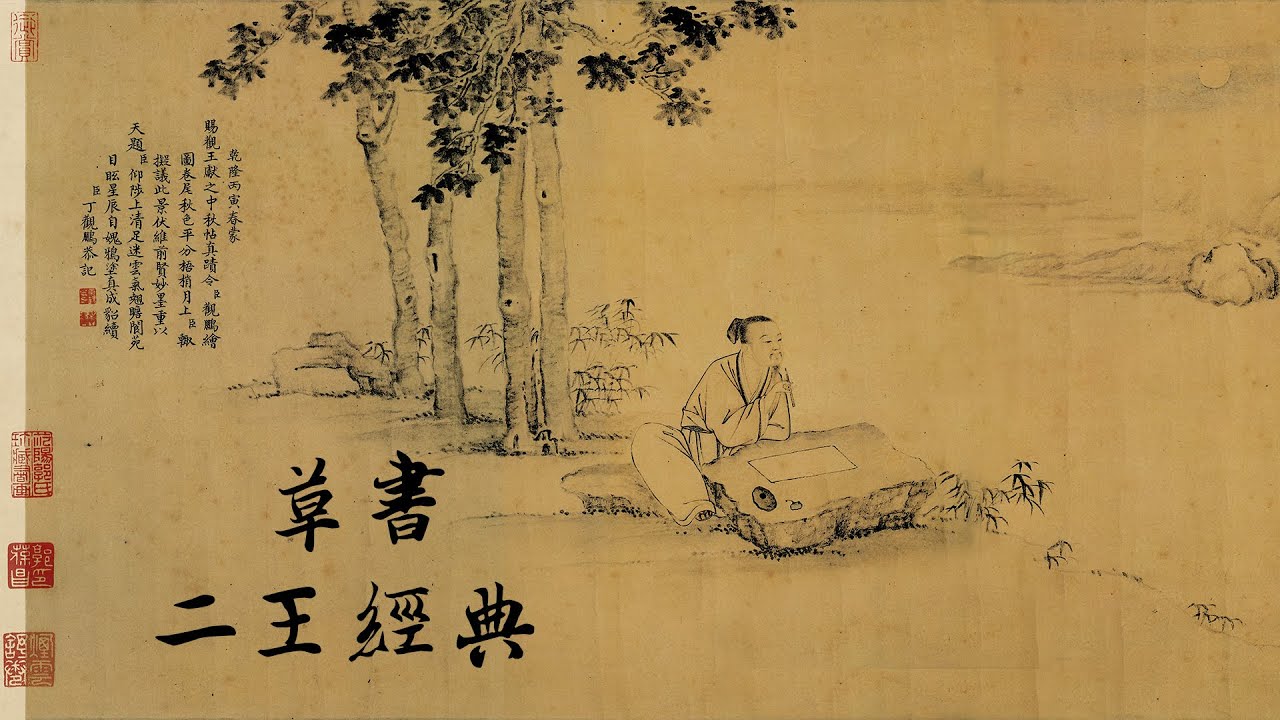 乾隆丙寅春蒙
賜觀王獻之中秋帖真蹟令臣觀鵬繪
圖卷尾秋色平分梧梢月上臣輙
擬議此景伏維前賢妙墨重以
天題臣仰陟上清足迷雲氣翹瞻閬苑
目眩星辰自媿鴉塗真成貂續
臣丁觀鵬恭記
御賞
草書
二王經典